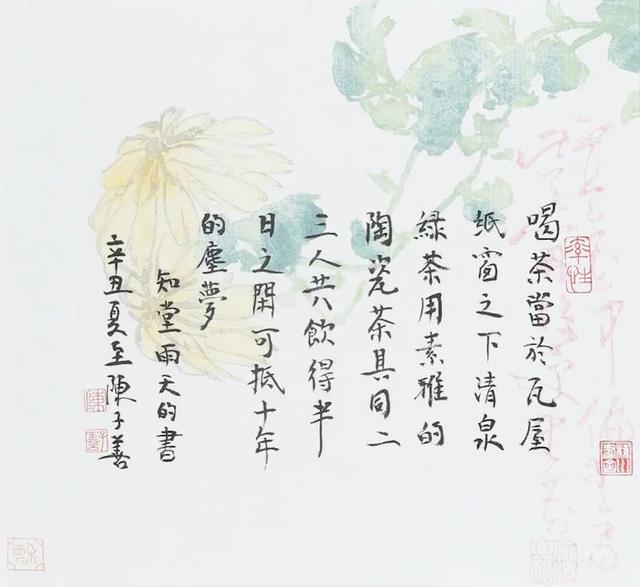 喝茶當於瓦屋
紙窗之下清泉
綠茶用素雅的
陶瓷茶具同二
三人共飲得半
日之閑可抵十年
的塵夢
知堂雨天的書
辛丑夏至陳子善
率性